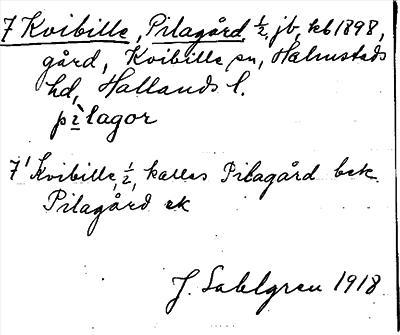 7 Kvibille, Pilagård 1/2, jb, kb 1898,
gård, Kvibille sn, Halmstads
hd, Hallands l.
pìlagor
7¹ Kvibille, 1/2, kallas Pilagård bek.
Pilagård ek
J. Sahlgren 1918